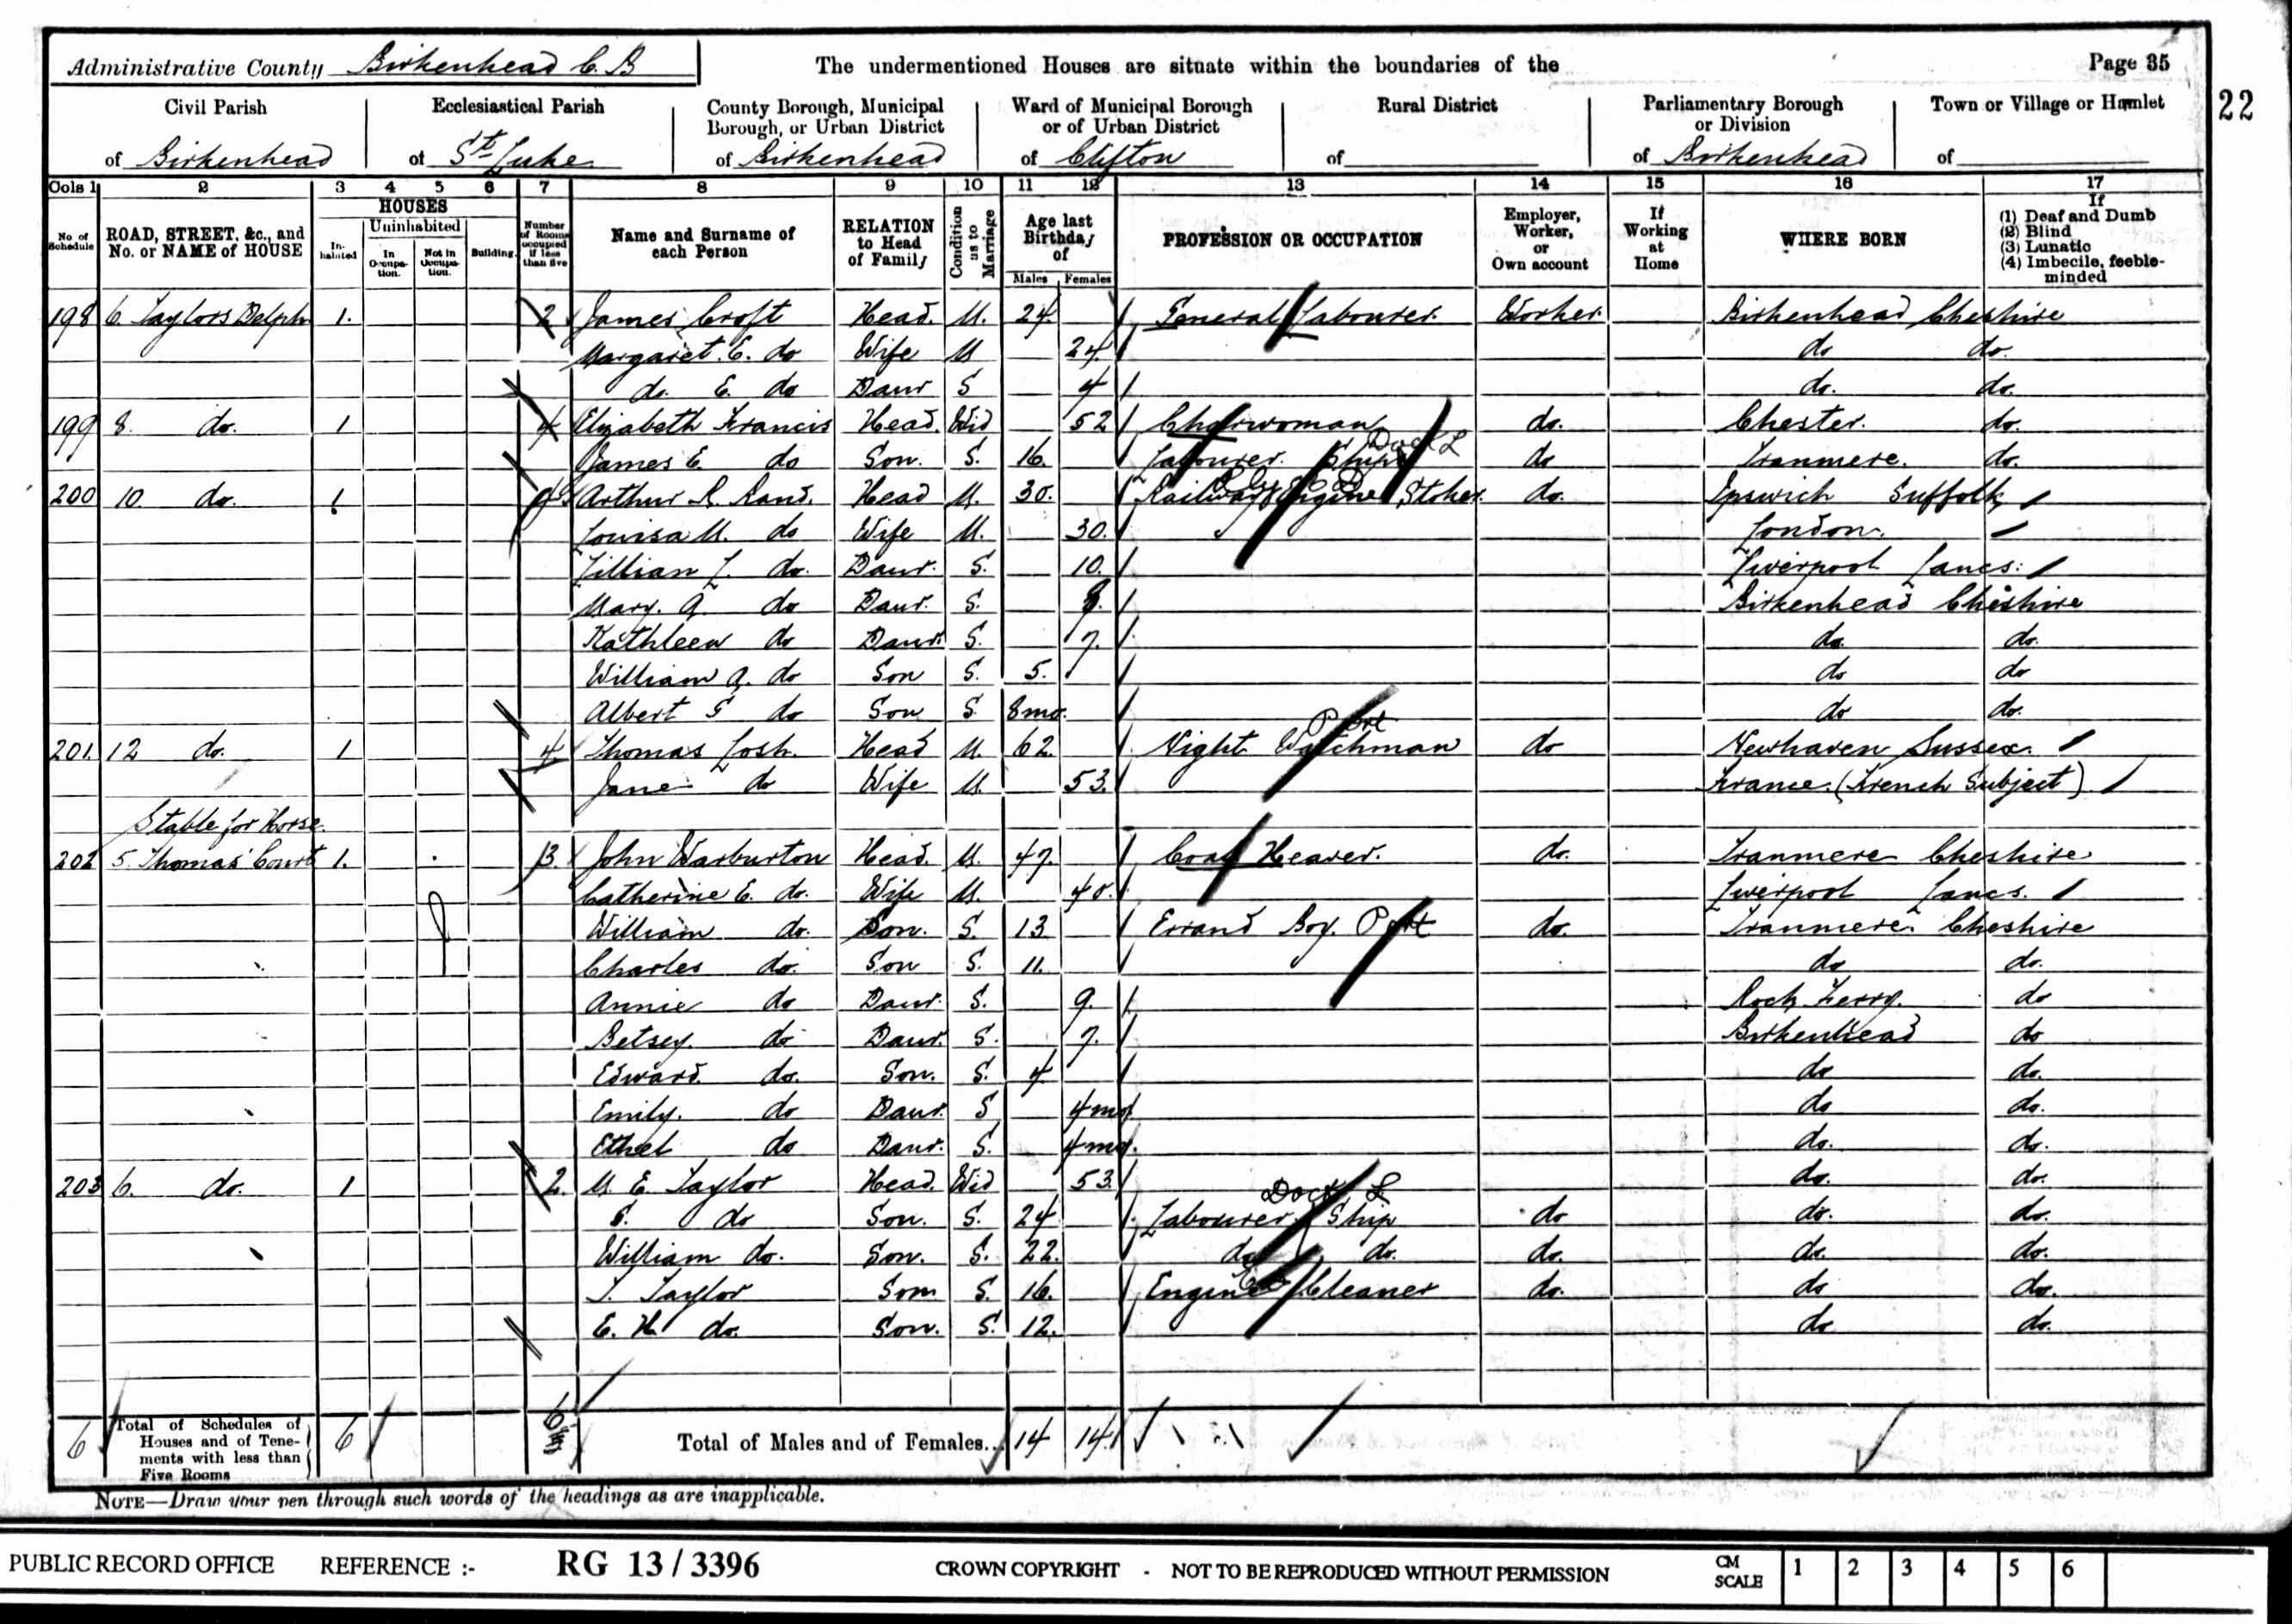 Administrative County Birkenhead C. B The undermentioned Houses are situate within the boundaries of the Page 35
22
Civil Parish of Birkenhead
Ecclesiastical Parish of St Luke
County Borough, Municipal Borough, or Urban District of Birkenhead
Ward of Municipal Borough or of Urban District of Clifton
Rural District of
Parliamentary Borough or Division of Birkenhead
Town or Village or Hamlet of
Cols 1 2 3 4 5 6 7 8 9 10 11 12 13 14 15 16 17
No of Schedule
ROAD, STREET, &c., and No. or NAME of HOUSE
HOUSES
In-habited
Uninhabited
In Occupa-tion.
Not in Occupa-tion.
Building.
Number of Rooms occupied if less than five
Name and Surname of each Person
RELATION to Head of Family
Condition as to Marriage
Age last Birthday of
Males Females
PROFESSION OR OCCUPATION
Employer, Worker, or Own account
If Working at Home
WHERE BORN
If
(1) Deaf and Dumb
(2) Blind
(3) Lunatic
(4) Imbecile, feeble-minded
198 6. Taylors Delph 1. 2 James Croft Head. M. 24. General Labourer. Worker. Birkenhead Cheshire
Margaret. E. do Wife M 24. do do.
do. E. do Daur S 4 do. do.
199 8. do. 1 4 Elizabeth Francis Head. Wid 52 Charwoman do. Chester. do.
Dock L
James E. do Son. S. 16. Labourer. Ship do Tranmere. do.
200 10. do. 1 Arthur R. Rand. Head M. 30. Railway Engine Stoker. do. Ipswich Suffolk
Louisa M. do Wife M. 30. London.
Lillian L. do. Daur. S. 10. Liverpool Lancs.
Mary. A. do Daur. S. 8. Birkenhead Cheshire
Kathleen do Daur. S. 7. do. do.
William A. do Son S. 5. do do
Albert G do Son S 8mo. do do.
Port
201. 12 do. 1 4 Thomas Losh. Head M. 62. Night Watchman do Newhaven Sussex.
Jane do Wife M. 53. France. (French Subject)
Stable for Horse.
202 5. Thomas' Court 1. 3. John Warburton Head. M. 47. Coal Heaver. do. Tranmere Cheshire
Catherine E. do. Wife M. 40. Liverpool Lancs.
William do. Son. S. 13 Errand Boy. Port do. Tranmere. Cheshire
Charles do. Son S. 11. do do.
Annie do Daur. S. 9. Rock Ferry. do
Betsey. do Daur. S. 7. Birkenhead do
Edward. do. Son. S. 4 do do.
Emily. do Daur. S 4mo. do do.
Ethel do Daur. S. 4mo. do. do.
203 6. do. 1 2. M. E. Taylor Head. Wid 53. do. do.
Dock L
S. do Son. S. 24 Labourer Ship do do. do.
William do. Son. S. 22. do do. do. do. do.
T. Taylor Son S. 16. Engine Cleaner do. do do.
E. H. do. Son. S. 12. do do.
6 Total of Schedules of Houses and of Tene-ments with less than Five Rooms 6 6 Total of Males and of Females... 14 14
NOTE—Draw your pen through such words of the headings as are inapplicable.
PUBLIC RECORD OFFICE REFERENCE :- RG 13 / 3396 CROWN COPYRIGHT - NOT TO BE REPRODUCED WITHOUT PERMISSION CM SCALE 1 2 3 4 5 6